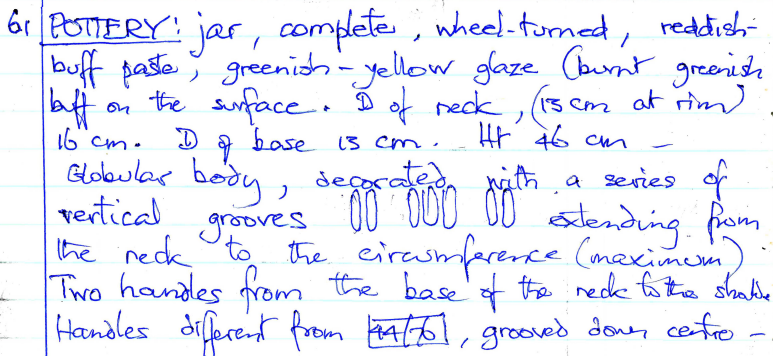 61 POTTERY: jar, complete, wheel-turned, reddish-
buff paste, greenish-yellow glaze (burnt greenish
buff on the surface. D of neck, (13 cm at rim)
16 cm. D of base 13 cm. Ht 46 cm -
Globular body, decorated with a series of
vertical grooves extending from
the neck to the circumference (maximum)
Two handles from the base of the neck to the
Handles different from 44/76, grooved down centre -